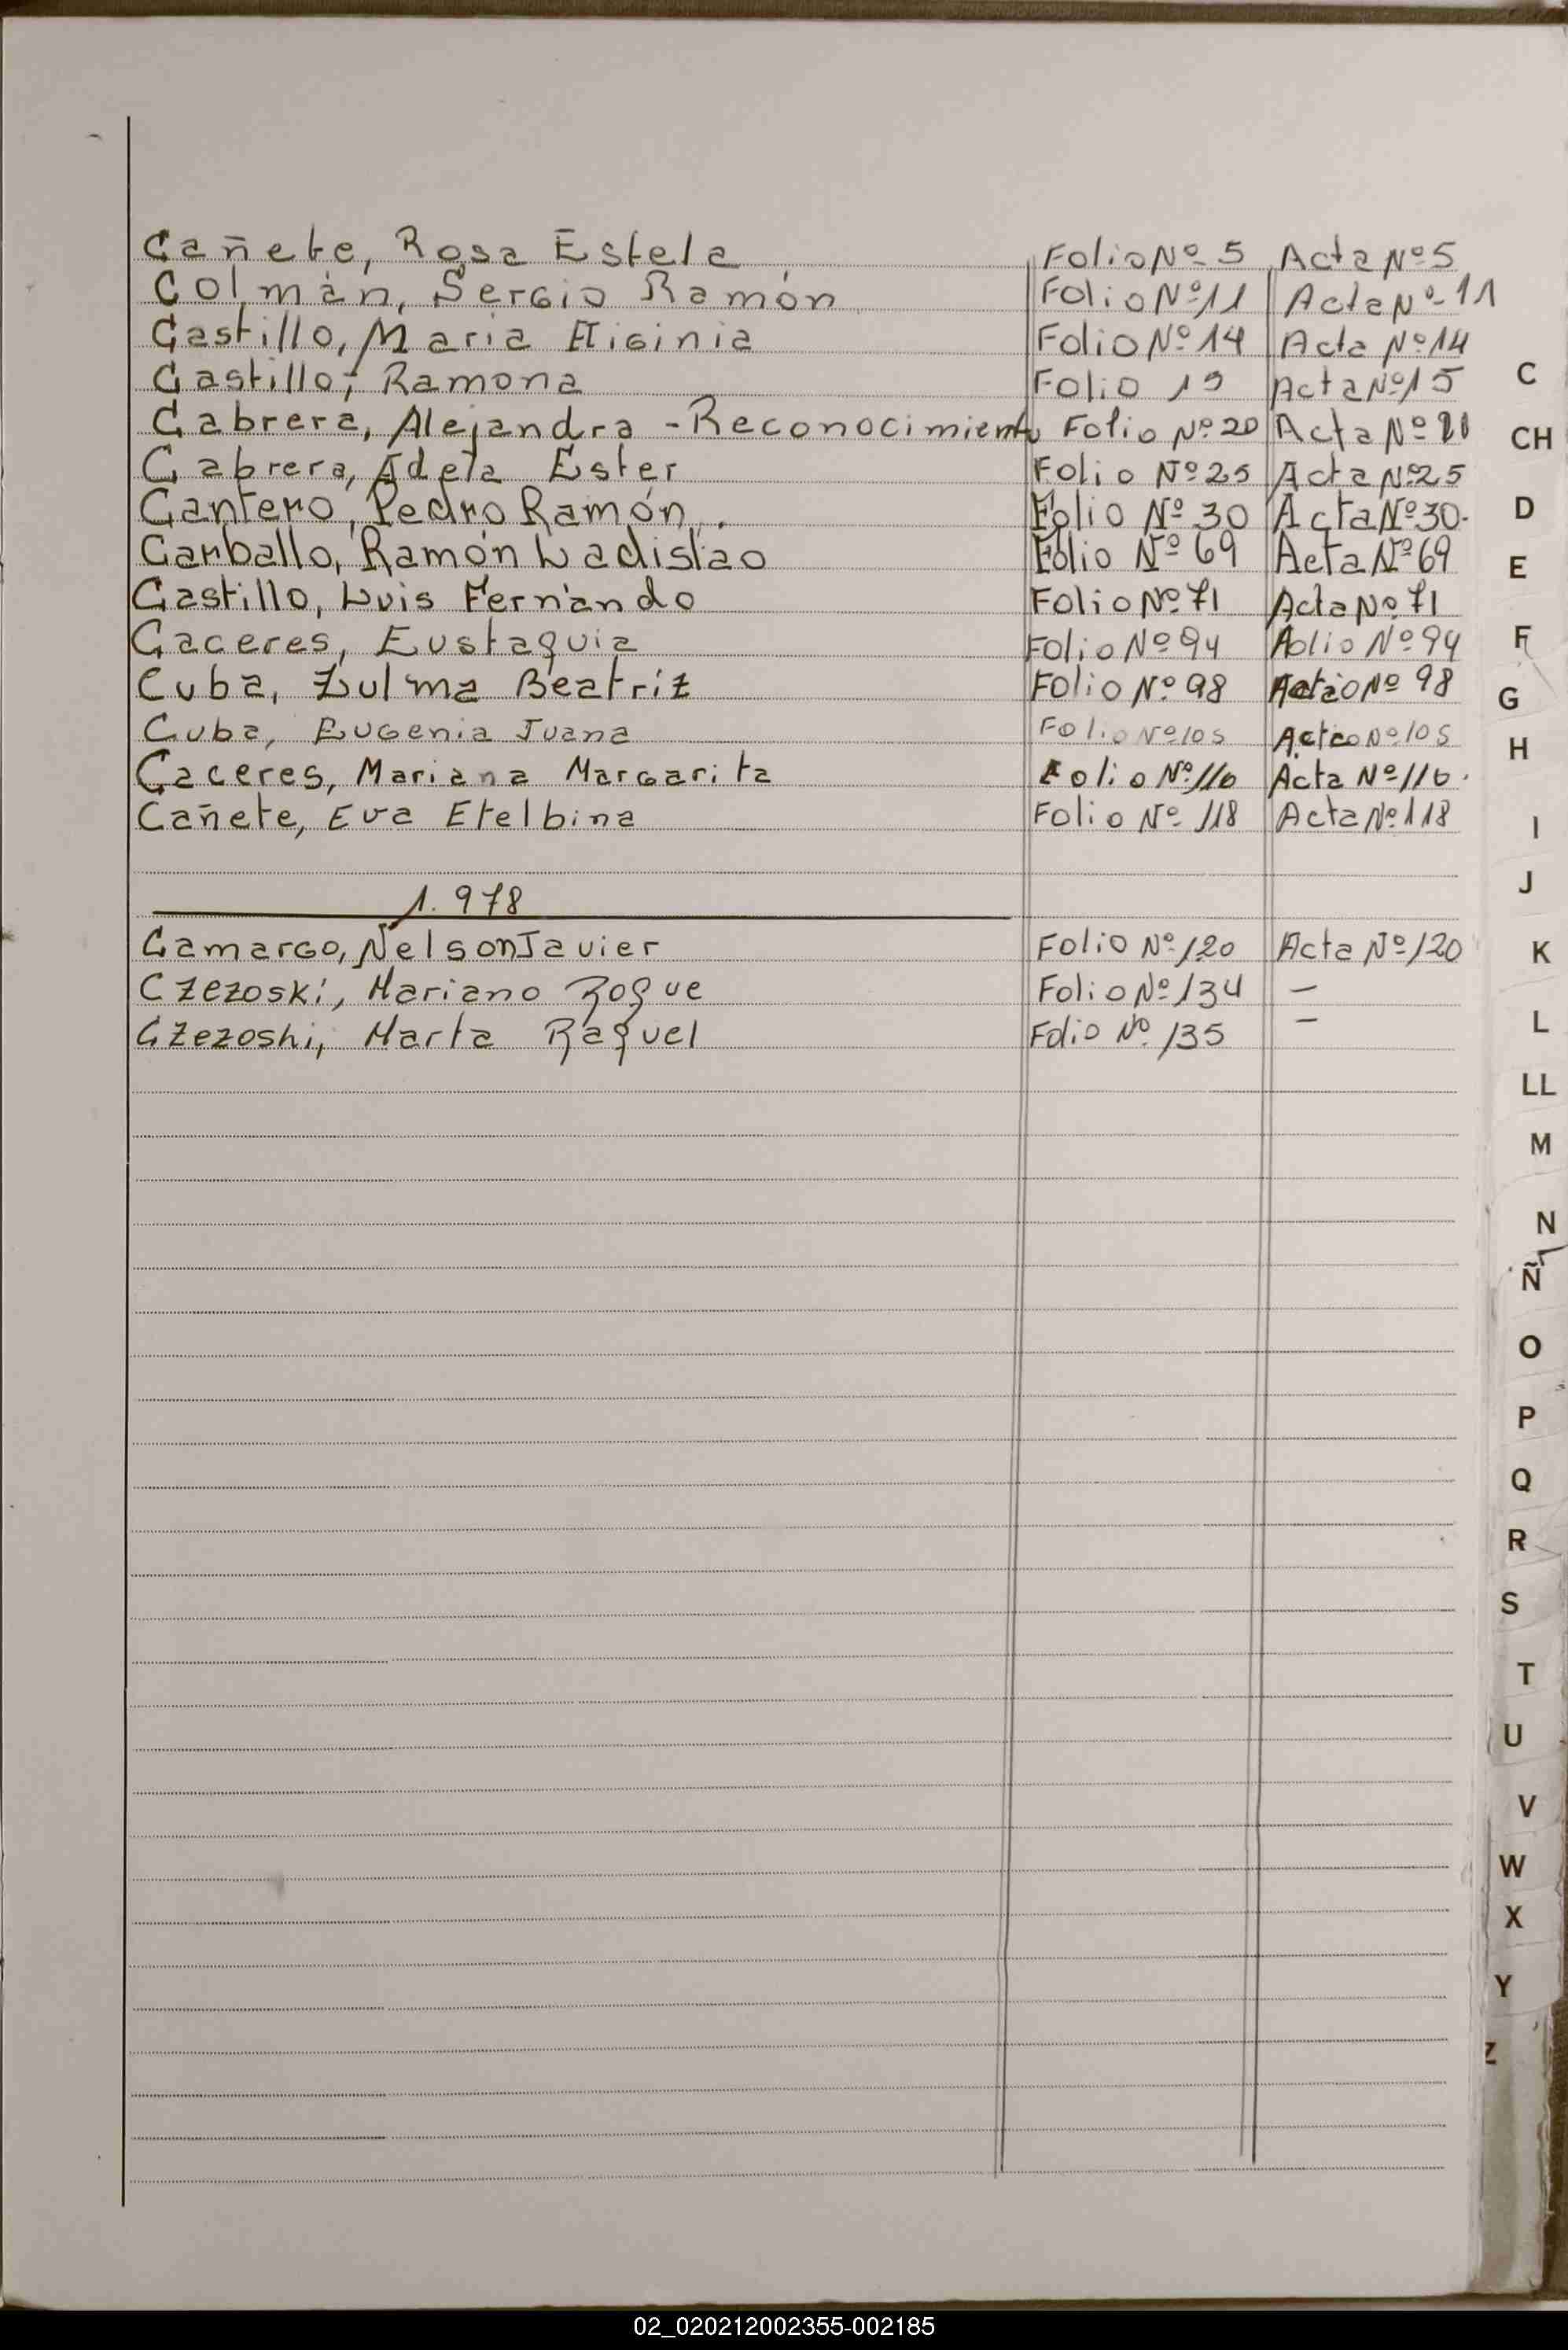 Cañete, Rosa Estela Folio Nº 5 Acta Nº 5
Colmán, Sergio Ramón Folio Nº 11 Acta Nº 11
Castillo, Maria Higinia Folio Nº 14 Acta Nº 14
Castillo, Ramona Folio 15 Acta Nº 15
Cabrera, Alejandra - Reconocimiento Folio Nº 20 Acta Nº 20
Cabrera, Adela Ester Folio Nº 25 Acta Nº 25
Cantero, Pedro Ramón. Folio Nº 30 Acta Nº 30.
Carballo, Ramón Ladislao Folio Nº 69 Acta Nº 69
Castillo, Luis Fernando Folio Nº 71 Acta Nº 71
Caceres, Eustaquia Folio Nº 94 Aolio Nº 94
Cuba, Zulma Beatriz Folio Nº 98 Acta Nº 98
Cuba, Eugenia Juana Folio Nº 105 Acta Nº 105
Caceres, Mariana Margarita Folio Nº 116 Acta Nº 116.
Cañete, Eva Etelbina Folio Nº 118 Acta Nº 118
1.978
Camargo, Nelson Javier Folio Nº 120 Acta Nº 120
Czezoski, Mariano Roque Folio Nº 134 —
Czezoshi, Marta Raquel Folio Nº 135 —
C
CH
D
E
F
G
H
I
J
K
L
LL
M
N
Ñ
O
P
Q
R
S
T
U
V
W
X
Y
Z
02_020212002355-002185